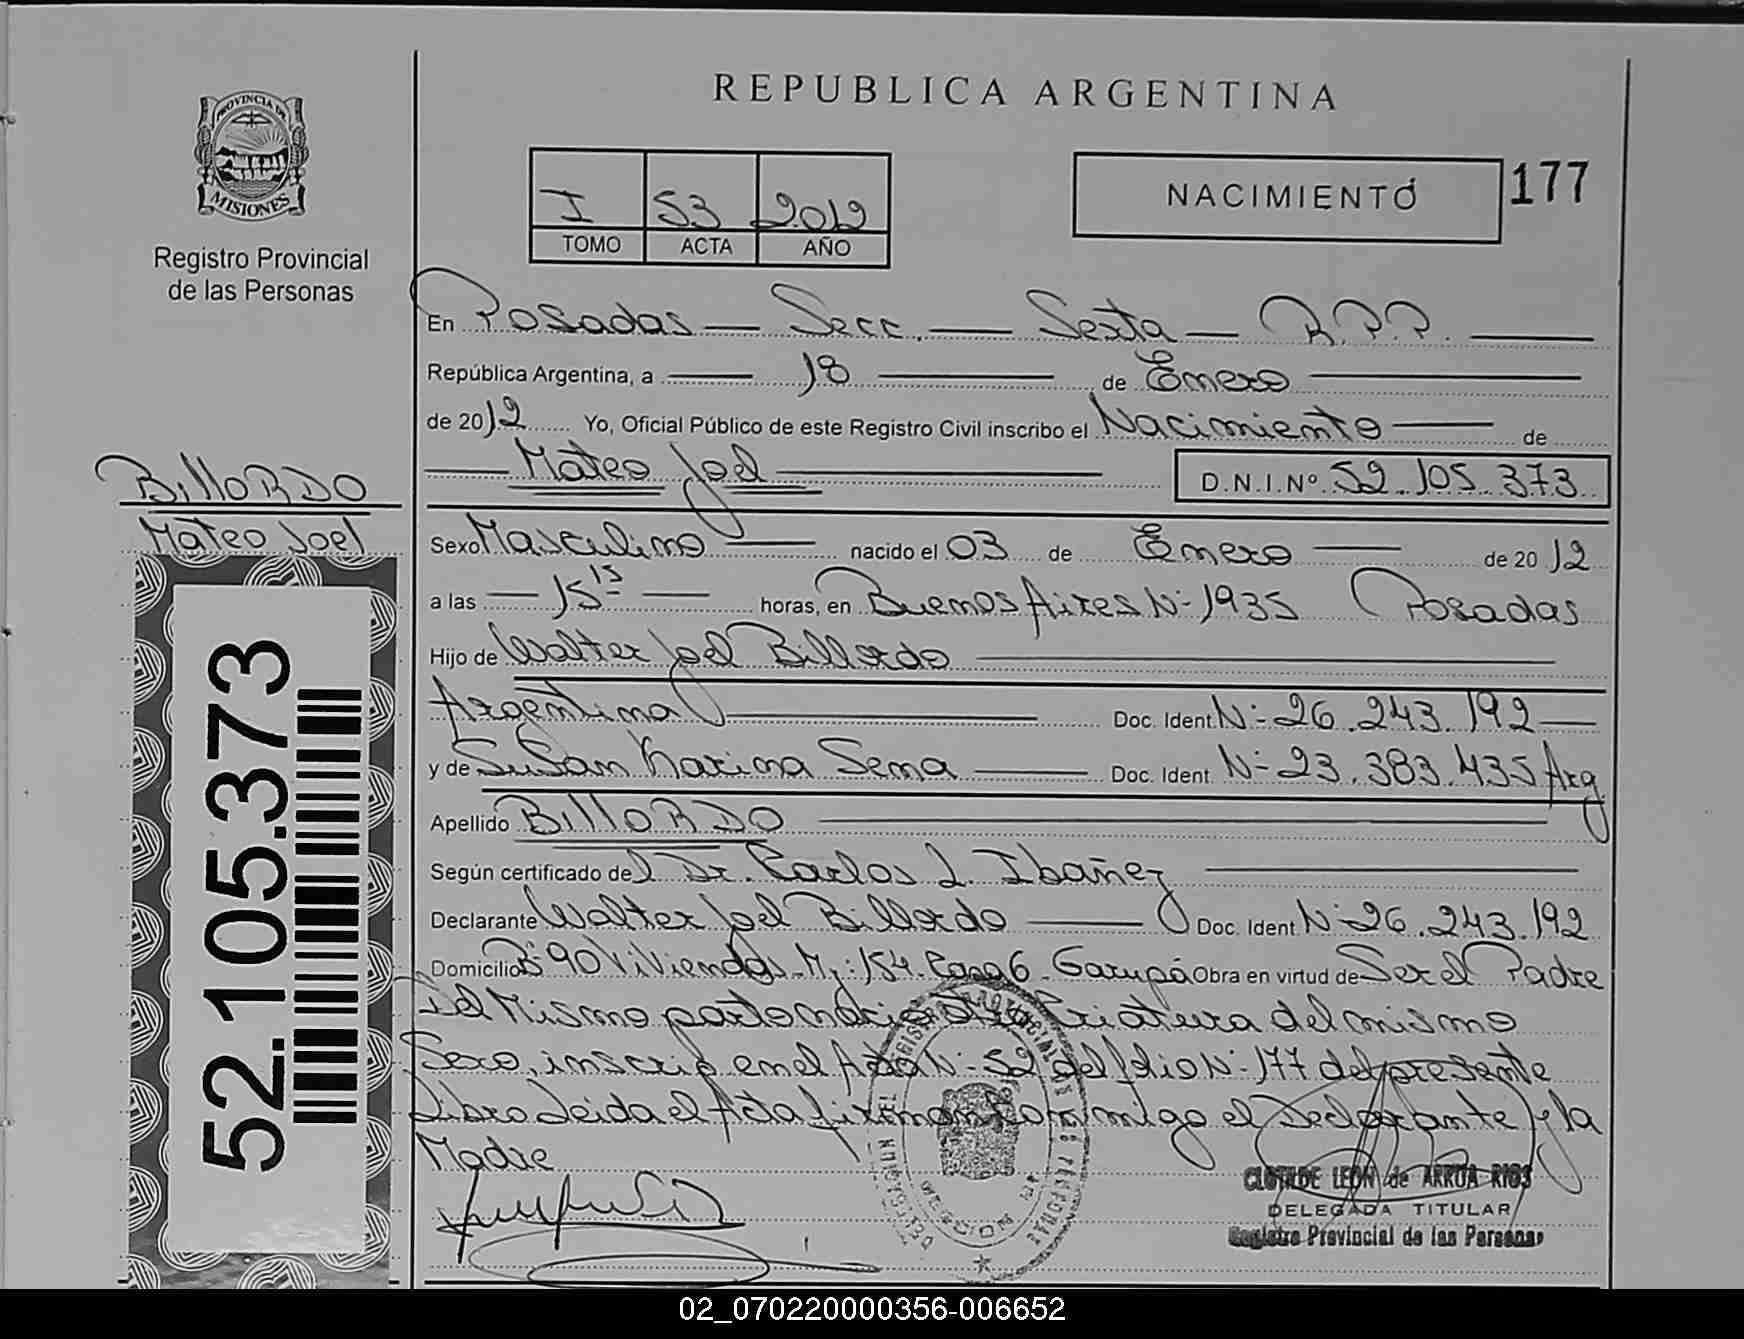 REPUBLICA ARGENTINA
PROVINCIA DE
MISIONES
Registro Provincial
de las Personas
I 53 2012
TOMO ACTA AÑO
NACIMIENTO
177
En Posadas — Secc. — Sexta — R.P.P. —
República Argentina, a — 18 — de Enero —
de 2012 Yo, Oficial Público de este Registro Civil inscribo el Nacimiento — de
— Mateo Joel —
D.N.I.Nº 52.105.373
BillORDO
Mateo Joel
Sexo Masculino — nacido el 03 de Enero — de 2012
a las — 15 15 — horas, en Buenos Aires Nº 1935 Posadas
Hijo de Walter Joel Billordo —
Argentina — Doc. Ident. Nº 26.243.192 —
y de Susan Karina Sena — Doc. Ident. Nº 23.383.435 Arg
Apellido BillORDO —
Según certificado del Dr. Carlos L. Ibañez —
Declarante Walter Joel Billordo — Doc. Ident Nº 26.243.192
Domicilio Bº 90 Viviendas Mz: 154 Casa 6 - Garupá Obra en virtud de Ser el Padre
Del Mismo parto nació otra Criatura del mismo
Sexo, inscrip en el Acta Nº 52 del folio Nº 177 del presente
Libro Leida el Acta firman Conmigo el Declarante y la
Madre
52.105.373
CLOTILDE LEON de ARRUA RIOS
DELEGADA TITULAR
Registro Provincial de las Personas
02_070220000356-006652